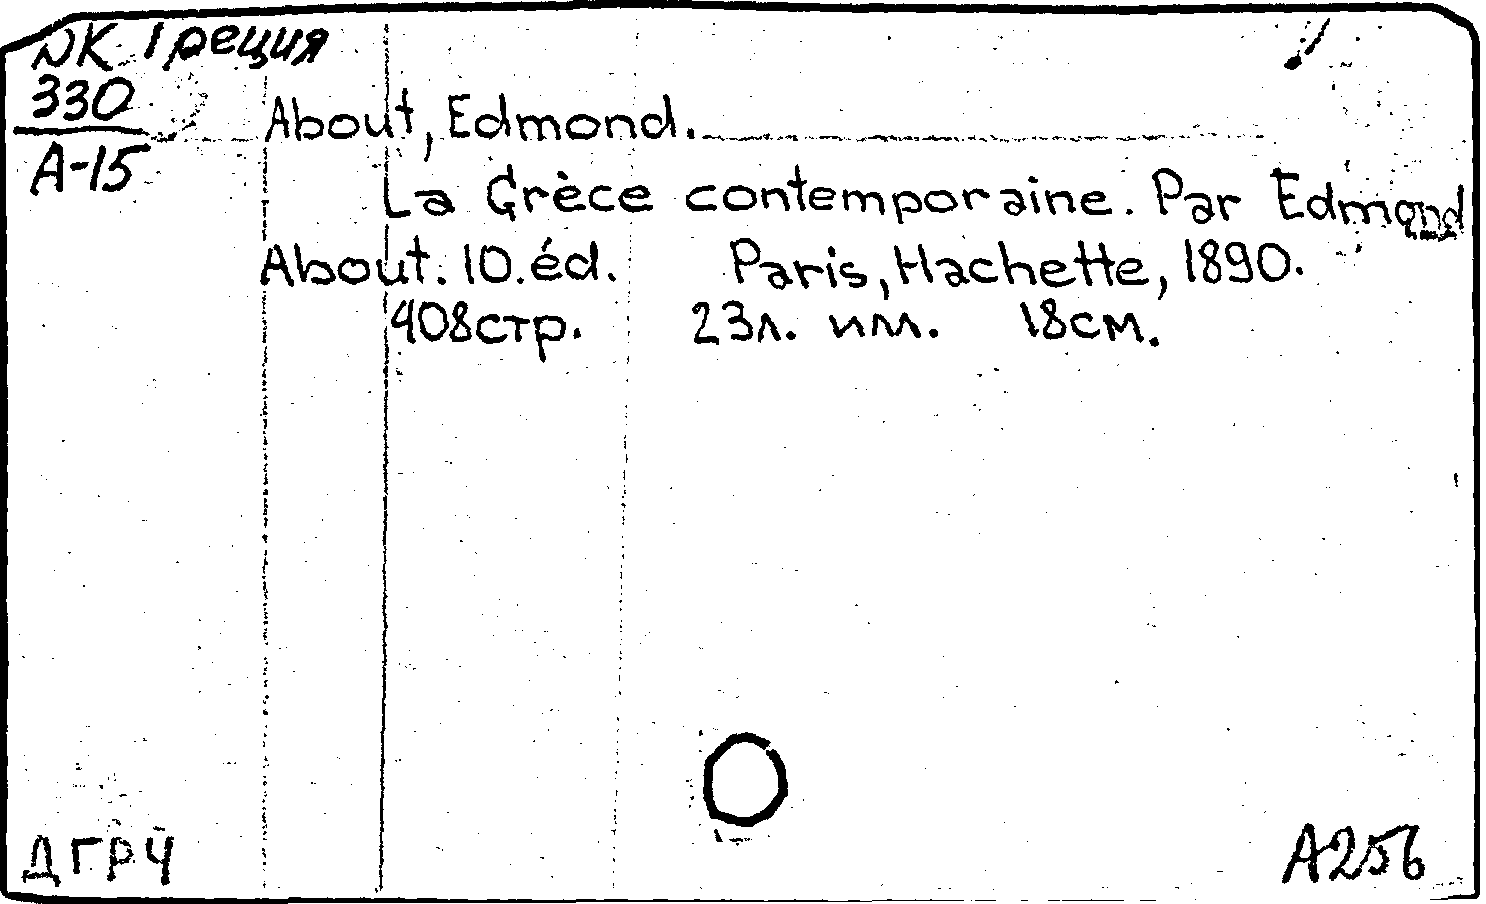 NK Греция
330
А-15
About, Edmond.
La Grèce contemporaine. Par Edmond
About. 10. éd. Paris, Hachette, 1890.
408стр. 23л. им. 18см.
ДГРЧ
А256